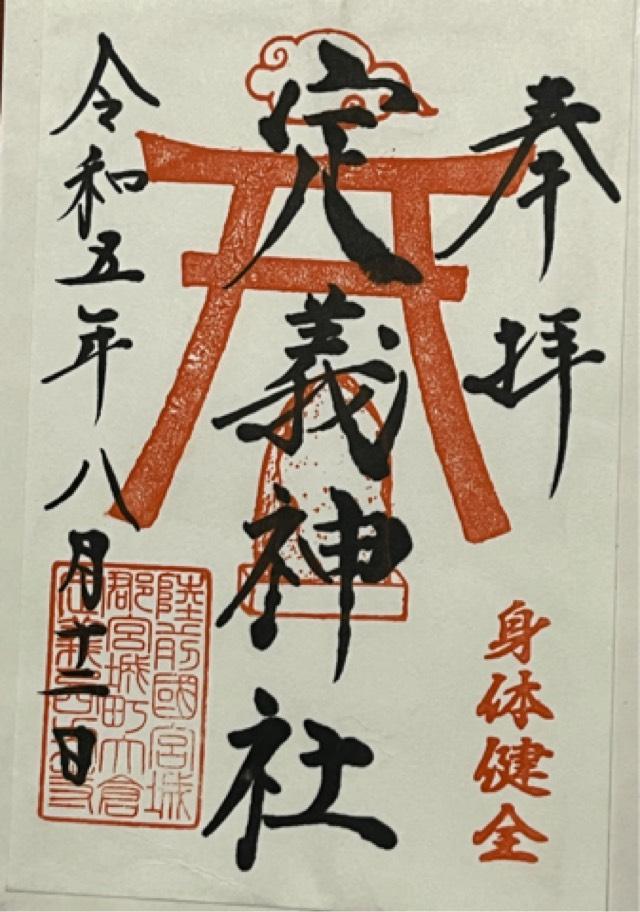 奉拝
身体健全
定義神社
令和五年八月十二日
陸前國宮城
郡宮城町大倉